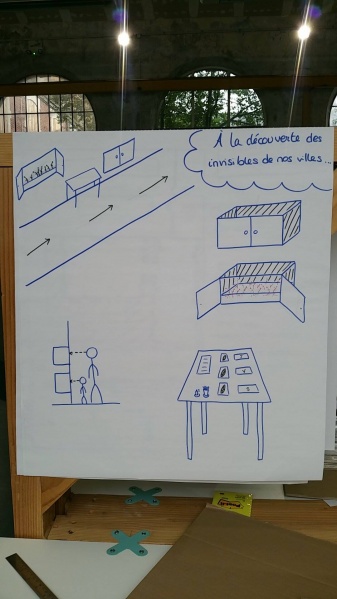 À la découverte des
invisibles de nos villes...